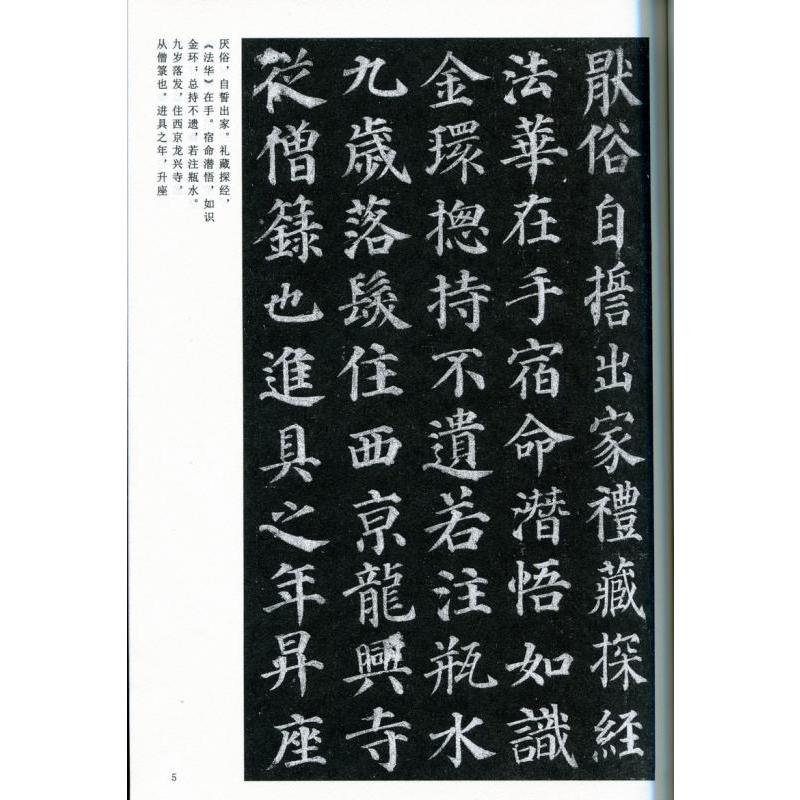 猒俗自誓出家禮藏探經
法華在手宿命潛悟如識
金環揔持不遺若注瓶水
九歲落髮住西京龍興寺
從僧籙也進具之年昇座
厌俗，自誓出家。礼藏探经，
《法华》在手。宿命潜悟，如识
金环；总持不遗，若注瓶水。
九岁落发，住西京龙兴寺，
从僧箓也。进具之年，升座
5